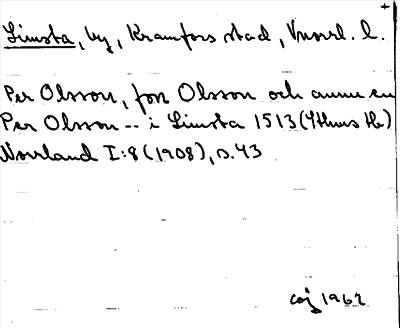 Limsta, by, Kramfors stad, Vnorrl. l.
Per Olsson, Jon Olsson och annu en
Per Olsson -- i Limsta 1513 (Ythms Hb)
Norrland I:8 (1908), s. 43
1962